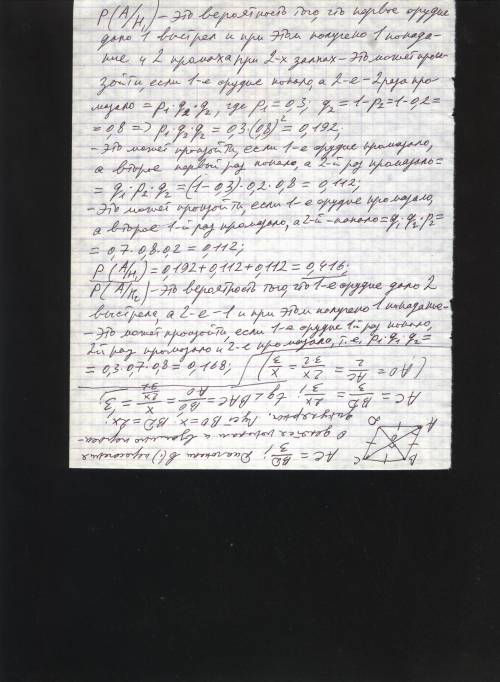 P(A/H₁) – это вероятность того, что первое орудие
дало 1 выстрел и при этом получено 1 попада-
ние и 2 промаха при 2-х залпах – это может прои-
зойти, если 1-е орудие попало, а 2-е – 2 раза про-
мазало = p₁·q₂·q₂, где p₁ = 0,3; q₂ = 1-p₂ = 1-0,2 =
= 0,8 => p₁q₂q₂ = 0,3·(0,8)² = 0,192;
– Это может произойти, если 1-е орудие промазало,
а второе первый раз попало, а 2-й раз промазало =
= q₁·p₂·q₂ = (1-0,3)·0,2·0,8 = 0,112;
– Это может произойти, если 1-е орудие промазало,
а второе 1-й раз промазало, а 2-й – попало = q₁·q₂·p₂ =
= 0,7·0,8·0,2 = 0,112;
P(A/H₁) = 0,192+0,112+0,112 = 0,416;
P(A/H₂) – это вероятность того, что 1-е орудие дало 2
выстрела, а 2-е – 1 и при этом получено 1 попаданье –
– Это может произойти, если 1-е орудие 1й раз попало,
2й раз промазало и 2-е промазало, т.е. p₁·q₁·q₂ =
= 0,3·0,7·0,8 = 0,168;
AC = BD/3; Диагонали в (·) пересечения
O делятся пополам и взаимно перпен-
дикулярны. Пусть BO = x; BD = 2x;
AC = BD/3 = 2x/3; tg∠BAC = BO/AO = x/(x/3) = 3;
(AO = AC/2 = 2x/3·2 = x/3)
A
B
C
D
O